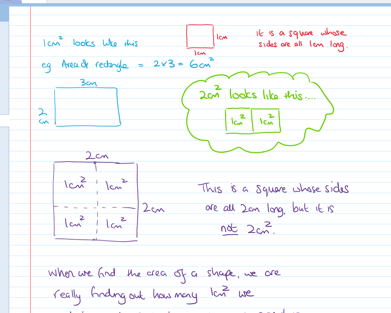 1cm² looks like this
1cm
1cm
it is a square whose
sides are all 1cm long.
eg Area of rectangle = 2×3 = 6cm²
3cm
2
cm
2cm² looks like this....
1cm² 1cm²
2cm
1cm² 1cm²
2cm
1cm² 1cm²
This is a square whose sides
are all 2cm long, but it is
not 2cm².
When we find the area of a shape, we are
really finding out how many 1cm² we